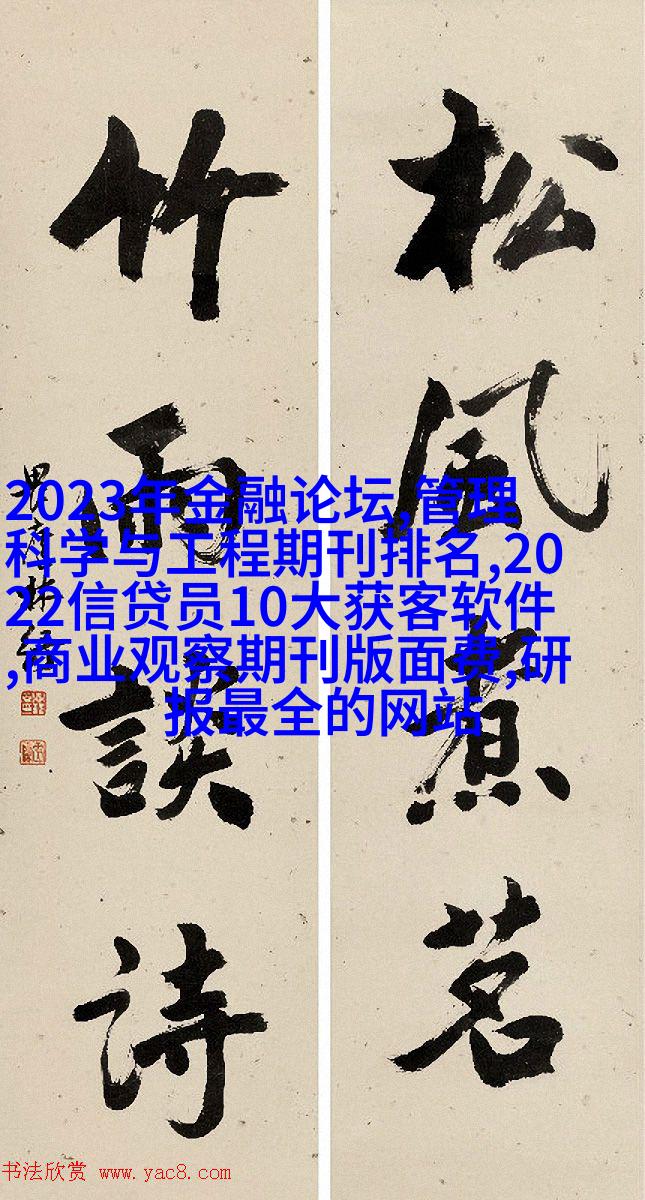 松風煮茗
竹雨談詩
2023年金融论坛,管理
科学与工程期刊排名,20
22信贷员10大获客软件
,商业观察期刊版面费,研
报最全的网站
书法欣赏 www.yac8.com